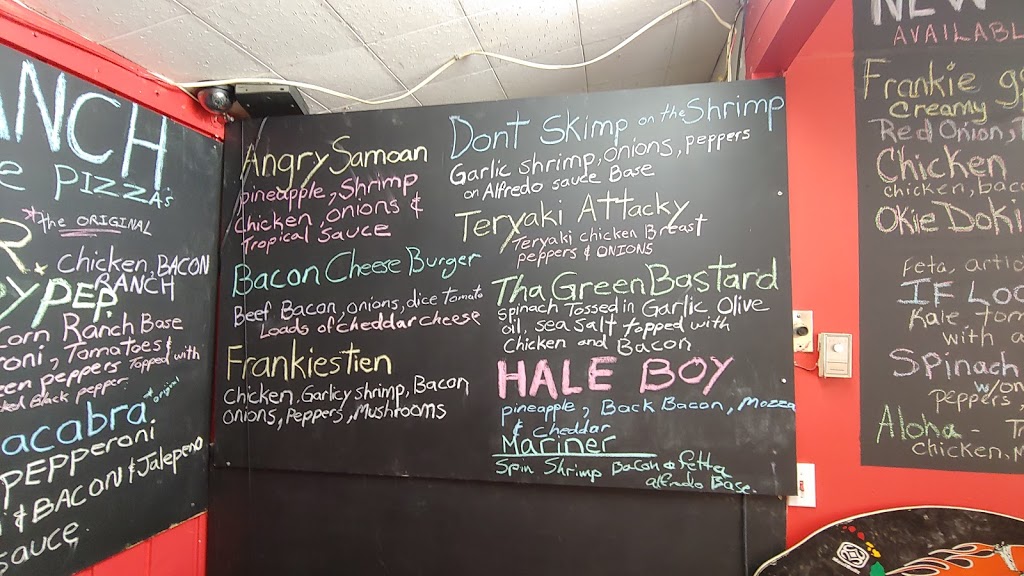 ANCH
e PIZZAs
*the ORIGINAL
R.
Chicken, BACON
RANCH
PY PEP.
Corn Ranch Base
roni, Tomatoes &
een peppers Topped with
Black pepper.
acabra *original
PEPPeroni
& BACON & Jalepeno
Sauce
Angry Samoan
pineapple, Shrimp
Chicken, onions &
Tropical Sauce
Bacon Cheese Burger
Beef Bacon, onions, dice Tomato
Loads of cheddar cheese
Frankiestien
Chicken, Garlicy shrimp, Bacon
onions, Peppers, Mushrooms
Dont Skimp on the Shrimp
Garlic shrimp, onions, peppers
on Alfredo sauce Base
Teryaki Attacky
Teryaki chicken Breast
peppers & ONIONS
Tha Green Bastard
spinach Tossed in Garlic Olive
oil, sea salt topped with
Chicken and Bacon
HALE BOY
pineapple, Back Bacon, Mozza
& Cheddar
Mariner
Spin Shrimp Bacon & Fetta
alfredo Base.
NEW
AVAILABL
Frankie
Creamy
Red Onion,
Chicken
chicken, baco
Okie Doki
Feta, artic
IF Loo
Kale tom
with a
Spinach
w/on
peppers,
Aloha - T
chicken, M